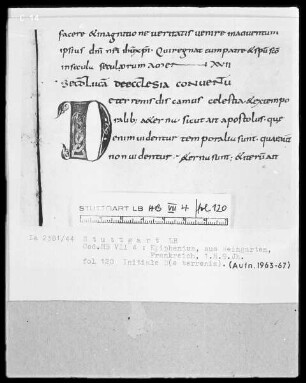 facere & inagnitione ueritatis uenire inaduentum
ipsius dni nri ihuxpi Qui regnat cum patre & spu sco
insecula seculorum amen XVII
SECD LUCA DE ECCLESIA CONUENTU
De terrenis discamus celestia & extempo
ralib; aeterna sicut ait apostolus que
enim uidentur temporalia sunt quae autem
non uidentur aeterna sunt
STUTTGART LB HB VII 4 fol. 120
La 2381/44 Stuttgart LB
Cod.HB VII 4 : Epiphanius, aus Weingarten,
Frankreich, 1.H.9.Jh.
fol 120 Initiale D(e terrenis). (Aufn. 1963-67)